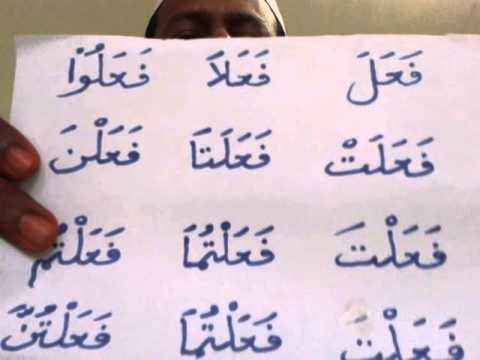 فَعَلَ فَعَلَا فَعَلُوْا
فَعَلَتْ فَعَلَتَا فَعَلْنَ
فَعَلْتَ فَعَلْتُمَا فَعَلْتُمْ
فَعَلْتِ فَعَلْتُمَا فَعَلْتُنَّ